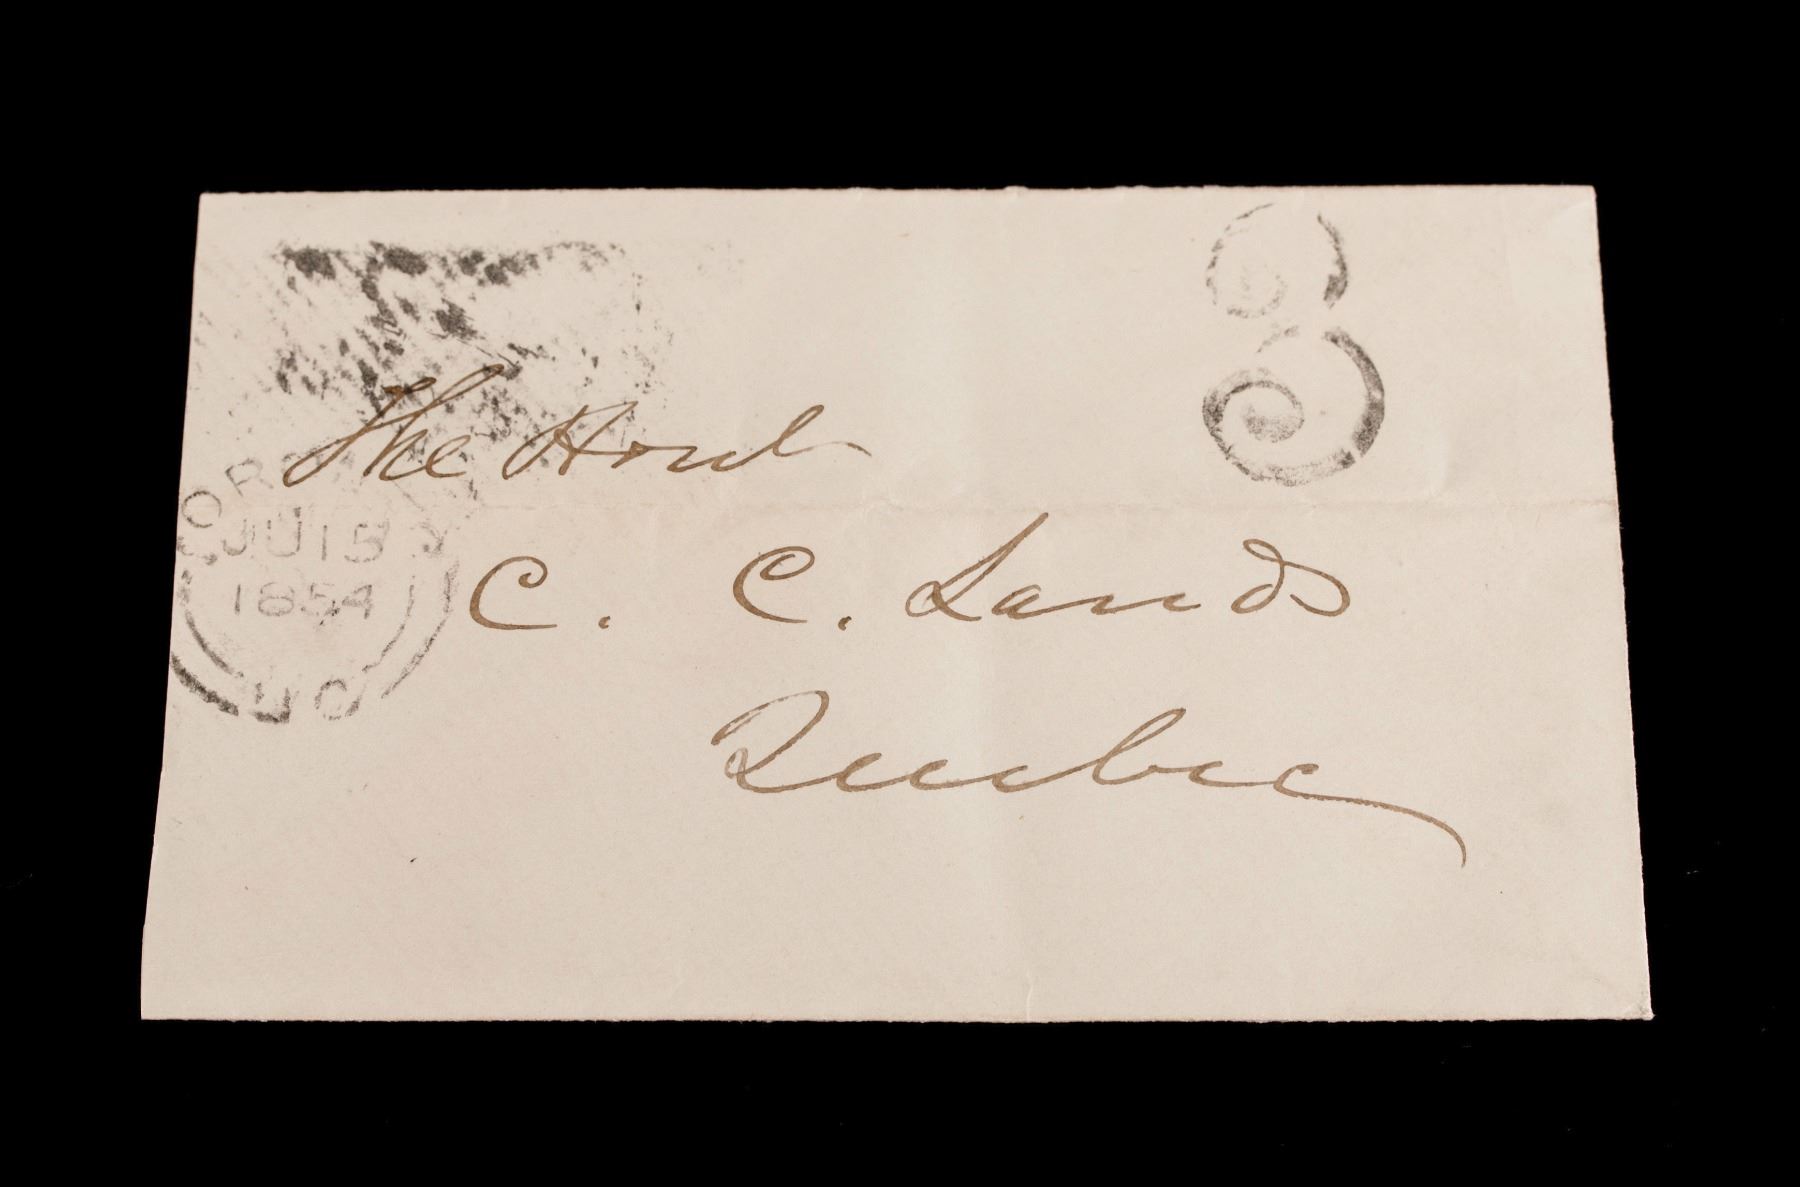 3
The Honl
C. C. Lands
Quebec
JU 15
1854
UC